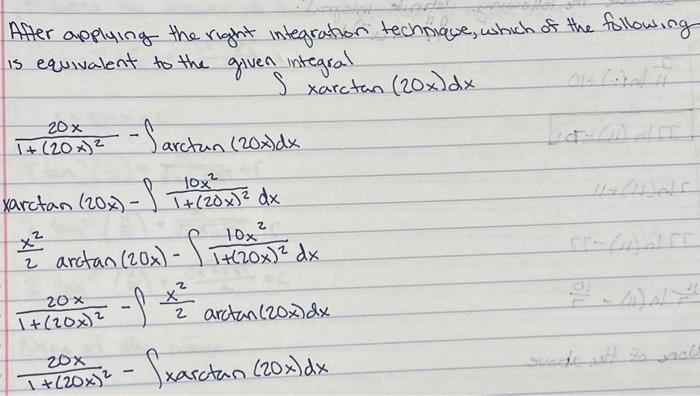 After applying the right integration technique, which of the following
is equivalent to the given integral
∫ xarctan (20x)dx
20x / 1+(20x)² - ∫arctan (20x)dx
xarctan (20x) - ∫ 10x² / 1+(20x)² dx
x²/2 arctan (20x) - ∫ 10x² / 1+(20x)² dx
20x / 1+(20x)² - ∫ x²/2 arctan(20x)dx
20x / 1+(20x)² - ∫xarctan (20x)dx